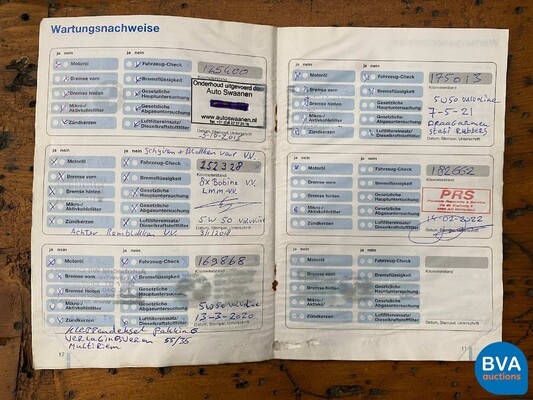 Wartungsnachweise
ja nein
ja nein
Motoröl
Fahrzeug-Check
125400
Bremse vorn
Bremsflüssigkeit
Kilometerstand
Bremse hinten
Gesetzliche Hauptuntersuchung
Mikro-/Aktivkohlefilter
Gesetzliche Abgasuntersuchung
Zündkerzen
Luftfiltereinsatz/Dieselkraftstofffilter
Onderhoud uitgevoerd door
Auto Swaanen
www.autoswaanen.nl
Datum, Stempel, Unterschrift
Schijven + Blokken voor V.V.
ja nein
Motoröl
Fahrzeug-Check
152328
Bremse vorn
Bremsflüssigkeit
8x Bobine V.V.
Bremse hinten
Gesetzliche Hauptuntersuchung
LMM V.V.
Mikro-/Aktivkohlefilter
Gesetzliche Abgasuntersuchung
Zündkerzen
Luftfiltereinsatz/Dieselkraftstofffilter
5W50 Valvoline
Achter Remblokken V.V.
ja nein
ja nein
Motoröl
Fahrzeug-Check
169868
Bremse vorn
Bremsflüssigkeit
Kilometerstand
Bremse hinten
Gesetzliche Hauptuntersuchung
Mikro-/Aktivkohlefilter
Gesetzliche Abgasuntersuchung
5W50 Valvoline
Zündkerzen
Luftfiltereinsatz/Dieselkraftstofffilter
13-3-2020
Datum, Stempel, Unterschrift
Kleppendeksel Pakking
Verlagingsveren 55/35
Multiriem
12
ja nein
ja nein
Motoröl
Fahrzeug-Check
175013
Bremse vorn
Bremsflüssigkeit
Kilometerstand
Bremse hinten
Gesetzliche Hauptuntersuchung
5W50 Valvoline
Mikro-/Aktivkohlefilter
Gesetzliche Abgasuntersuchung
7-5-21
Draagarmen
Zündkerzen
Luftfiltereinsatz/Dieselkraftstofffilter
Stabi Rubbers
Datum, Stempel, Unterschrift
ja nein
ja nein
Motoröl
Fahrzeug-Check
182652
Bremse vorn
Bremsflüssigkeit
Kilometerstand
Bremse hinten
Gesetzliche Hauptuntersuchung
PRS
Mikro-/Aktivkohlefilter
Gesetzliche Abgasuntersuchung
Zündkerzen
Luftfiltereinsatz/Dieselkraftstofffilter
14-02-2022
Datum, Stempel, Unterschrift
ja nein
ja nein
Motoröl
Fahrzeug-Check
Bremse vorn
Bremsflüssigkeit
Kilometerstand
Bremse hinten
Gesetzliche Hauptuntersuchung
Mikro-/Aktivkohlefilter
Gesetzliche Abgasuntersuchung
Zündkerzen
Luftfiltereinsatz/Dieselkraftstofffilter
Datum, Stempel, Unterschrift
BVA
auctions